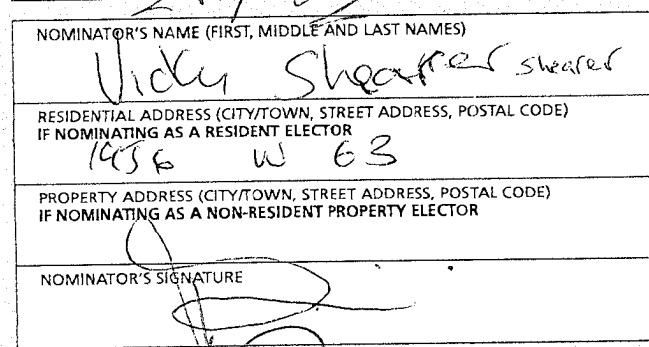 NOMINATOR'S NAME (FIRST, MIDDLE AND LAST NAMES)
Vicky Shearer shearer
RESIDENTIAL ADDRESS (CITY/TOWN, STREET ADDRESS, POSTAL CODE)
IF NOMINATING AS A RESIDENT ELECTOR
1456 W 63
PROPERTY ADDRESS (CITY/TOWN, STREET ADDRESS, POSTAL CODE)
IF NOMINATING AS A NON-RESIDENT PROPERTY ELECTOR
NOMINATOR'S SIGNATURE